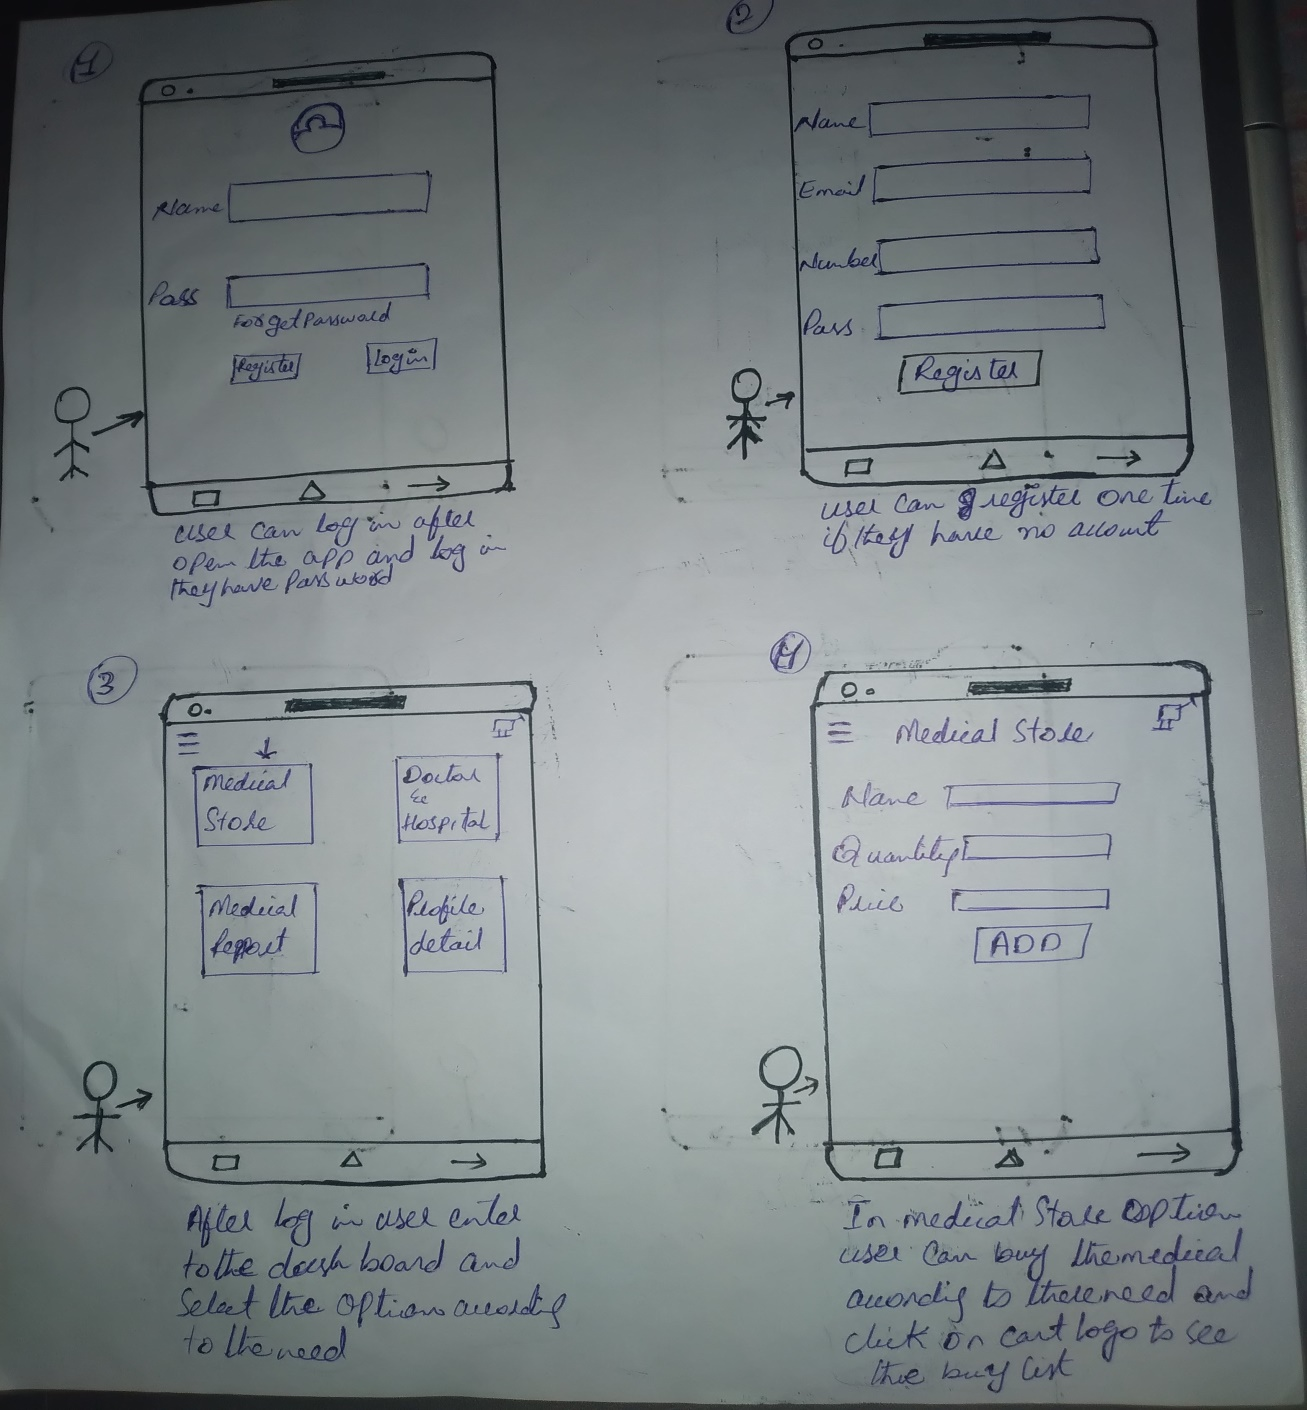 1
Name
Pass
Forget Password
Register
Login
user can log in after
open the app and log in
they have Password
2
Name
Email
Number
Pass
Register
user can register one time
if they have no account
3
Medical
Store
Doctor
&
Hospital
Medical
Report
Profile
detail
After log in user enter
to the dash board and
Select the option according
to the need
4
Medical Store
Name
Quantity
Price
ADD
In medical Store option
user can buy the medical
according to there need and
click on cart logo to see
the buy list